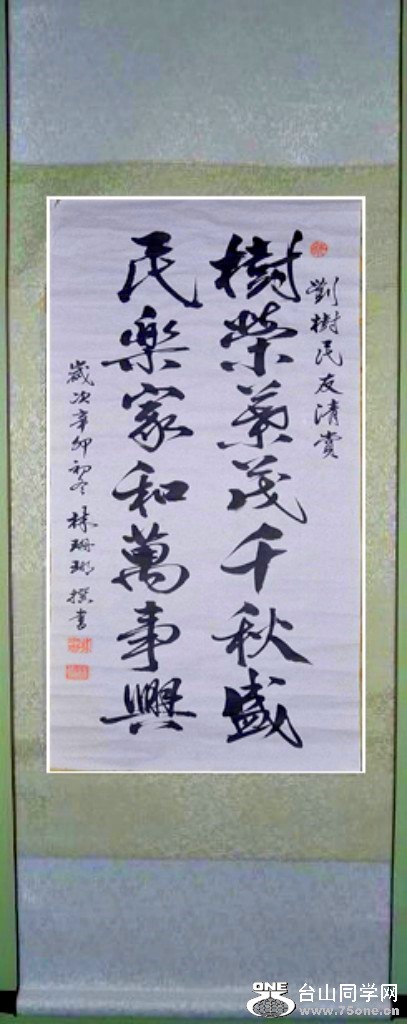 劉樹民友清赏
樹榮葉茂千秋盛
民樂家和萬事興
歲次辛卯初冬 林珊瑚 撰書
ONE
台山同学网
www.75one.cn